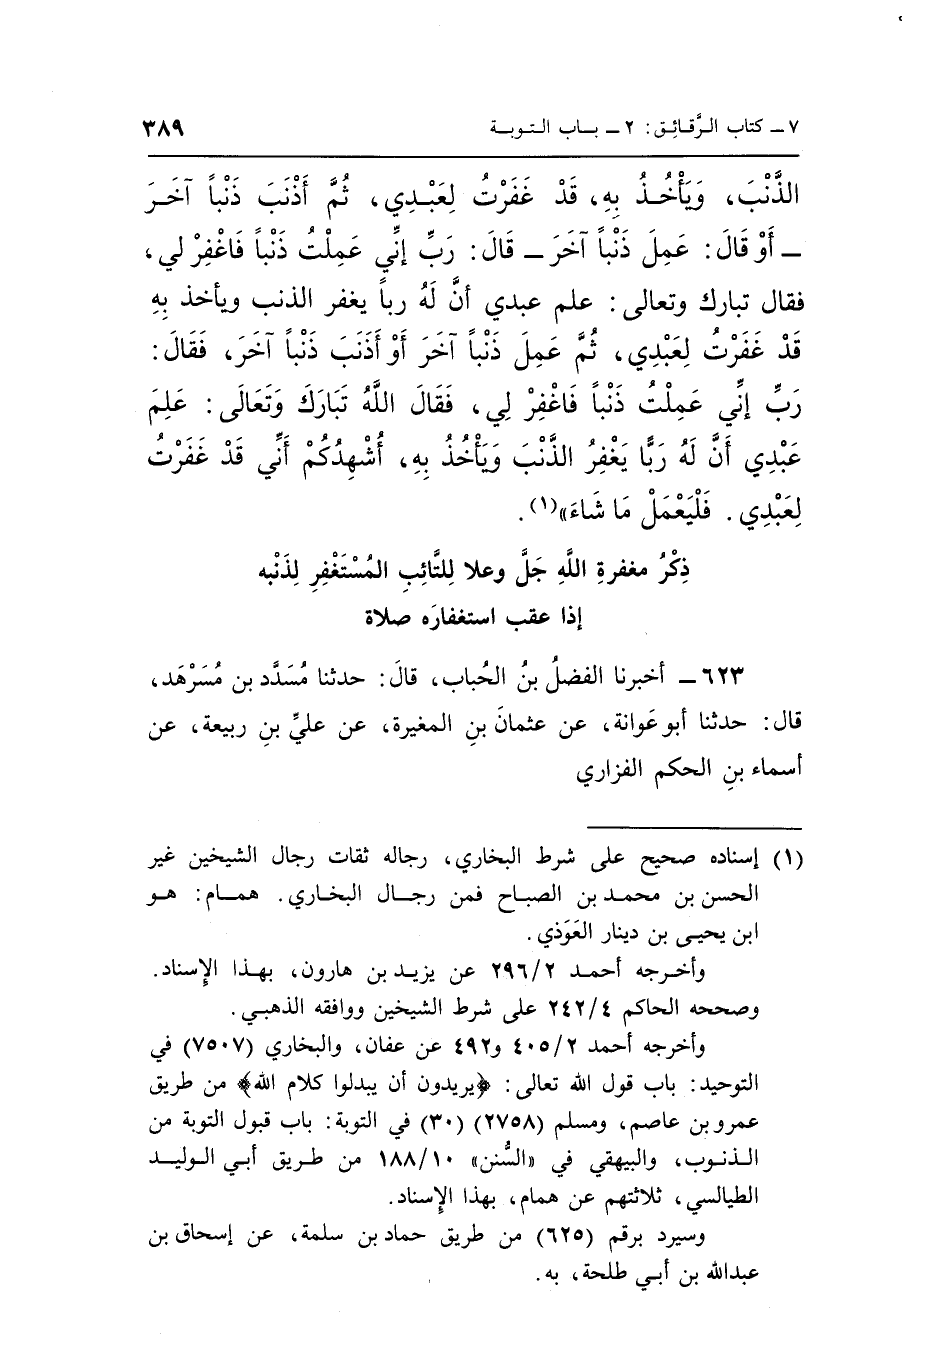 ٧ - كتاب الرَّقائِق: ٢ - باب التوبة ٣٨٩
الذَّنْبَ، وَيَأْخُذُ بِهِ، قَدْ غَفَرْتُ لِعَبْدِي، ثُمَّ أَذْنَبَ ذَنْباً آخَرَ
- أَوْ قَالَ: عَمِلَ ذَنْباً آخَرَ - قَالَ: رَبِّ إِنِّي عَمِلْتُ ذَنْباً فَاغْفِرْ لي،
فقال تبارك وتعالى: علم عبدي أنَّ لَهُ رباً يغفر الذنب ويأخذ بِهِ
قَدْ غَفَرْتُ لِعَبْدِي، ثُمَّ عَمِلَ ذَنْباً آخَرَ أَوْ أَذَنَبَ ذَنْباً آخَرَ، فَقَالَ:
رَبِّ إِنِّي عَمِلْتُ ذَنْباً فَاغْفِرْ لِي، فَقَالَ اللَّهُ تَبَارَكَ وَتَعَالَى: عَلِمَ
عَبْدِي أَنَّ لَهُ رَبًّا يَغْفِرُ الذَّنْبَ وَيَأْخُذُ بِهِ، أُشْهِدُكُمْ أَنِّي قَدْ غَفَرْتُ
لِعَبْدِي. فَلْيَعْمَلْ مَا شَاءَ»(١).
ذِكْرُ مغفرةِ اللَّهِ جَلَّ وعلا لِلتَّائِبِ المُسْتَغْفِرِ لِذَنْبه
إذا عقب استغفارَه صلاة
٦٢٣ - أخبرنا الفضلُ بنُ الحُباب، قالَ: حدثنا مُسَدَّد بن مُسَرْهَد،
قال: حدثنا أبو عَوانة، عن عثمانَ بنِ المغيرة، عن عليِّ بنِ ربيعة، عن
أسماء بنِ الحكم الفزاري
(١) إسناده صحيح على شرط البخاري، رجاله ثقات رجال الشيخين غير
الحسن بن محمد بن الصباح فمن رجال البخاري. همام: هو
ابن يحيى بن دينار العَوَذي.
وأخرجه أحمد ٢٩٦/٢ عن يزيد بن هارون، بهذا الإسناد.
وصححه الحاكم ٢٤٢/٤ على شرط الشيخين ووافقه الذهبي.
وأخرجه أحمد ٤٠٥/٢ و٤٩٢ عن عفان، والبخاري (٧٥٠٧) في
التوحيد: باب قول الله تعالى: ﴿يريدون أن يبدلوا كلام الله﴾ من طريق
عمرو بن عاصم، ومسلم (٢٧٥٨) (٣٠) في التوبة: باب قبول التوبة من
الذنوب، والبيهقي في «السُّنن» ١٨٨/١٠ من طريق أبي الوليد
الطيالسي، ثلاثتهم عن همام، بهذا الإسناد.
وسيرد برقم (٦٢٥) من طريق حماد بن سلمة، عن إسحاق بن
عبدالله بن أبي طلحة، به.